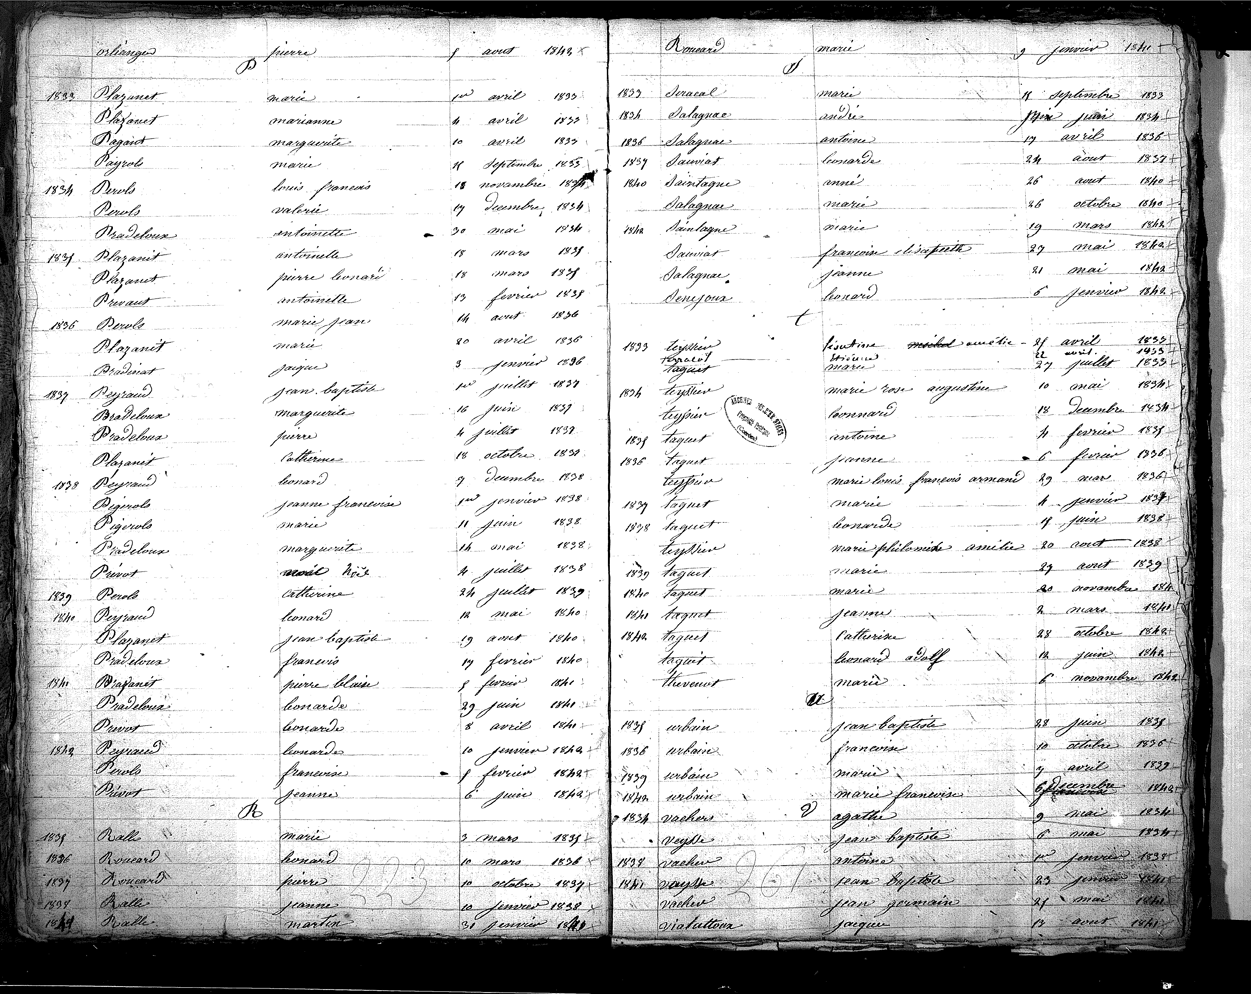 orliangea pierre 5 aout 1842
P
1833 Plazanet marie 1er avril 1833
Plazanet marianne 4 avril 1833
Pagaist marguerite 10 avril 1833
Payrols marie 18 Septembre 1833
1834 Perols louis francois 18 novembre 1834
Perols valerie 17 decembre 1834
Pradeloux antoinette 30 mai 1834
1835 Plazanit antoinette 18 mars 1835
Plazanet pierre leonard 18 mars 1835
Prevaut antoinette 13 fevrier 1835
1836 Perols marie jean 14 aout 1836
Plazanit marie 20 avril 1836
Bradinat jacque 3 janvier 1836
1837 Peyraud jean baptiste 1er juillet 1837
Bradeloux marguerite 16 juin 1837
Pradeloux pierre 4 juillet 1837
Plazanit Catherine 18 octobre 1837
1838 Peyraud leonard 9 decembre 1838
Pigerols jeanne francoise 1er janvier 1838
Pigerols marie 11 juin 1838
Pradeloux marguerite 14 mai 1838
Prévot noël 4 juillet 1838
1839 Perols Catherine 24 juillet 1839
1840 Peyraud leonard 12 mai 1840
Plazanet jean baptiste 19 aout 1840
Pradeloux francois 17 fevrier 1840
1841 Brazanit pierre blaise 5 fevrier 1841
Pradeloux leonarde 29 juin 1841
Prevot leonarde 8 avril 1841
1842 Peyraud leonarde 10 janvier 1842
Perols francoise 5 fevrier 1842
Prévot jeanne 6 juin 1842
R
1835 Ralle marie 3 mars 1835
1836 Roueard leonard 10 mars 1836
1837 Roueard pierre 10 octobre 1837
1838 Ralle jeanne 10 janvier 1838
1841 Ralle martin 31 janvier 1841
223
Roueard marie 9 janvier 1841
S
1833 Seraeal marie 18 septembre 1833
1834 Salagnac andré juin 1834
1836 Salagnac antoine 17 avril 1836
1837 Sauviat leonarde 24 aout 1837
1840 Saintagne anne 26 aout 1840
Salagnac marie 26 octobre 1840
1842 Saintagne marie 19 mars 1842
Sauviat francoise elisabeth 27 mai 1842
Salagnac jeanne 21 mai 1842
Senejoux leonard 6 janvier 1842
t
1833 teyssier amelie 25 avril 1833
terracol 22 avril 1833
taguet marie 27 juillet 1833
1834 teyssier marie rose augustine 10 mai 1834
teyssier leonnard 18 decembre 1834
1835 taguet antoine 4 fevrier 1835
1836 taguet jeanne 6 fevrier 1836
teyssier marie louis francois armand 29 mar 1836
1837 taguet marie 4 janvier 1837
1838 taguet leonarde 7 juin 1838
teyssier marie philomise amelie 20 aout 1838
1839 taguet marie 29 aout 1839
1840 taguet marie 20 novembre 184
1841 taguet jeanne 2 mars 1841
1842 taguet Catherine 28 octobre 1842
taguit leonard adolf 12 juin 1842
thevenot marie 6 novembre 1842
U
1835 urbain jean baptiste 28 juin 1835
1836 urbain francoise 10 octobre 1836
1839 urbain marie 7 avril 1839
1842 urbain marie francoise 6 decembre 1842
V
1834 vachers agathe 9 mai 1834
veysse jean baptiste 6 mai 1834
1838 vacher antoine 1er janvier 1838
1841 vaysse jean baptiste 23 janvier 1841
vacher jean germain 25 mai 1841
vialattoux jacque 13 aout 1841
261